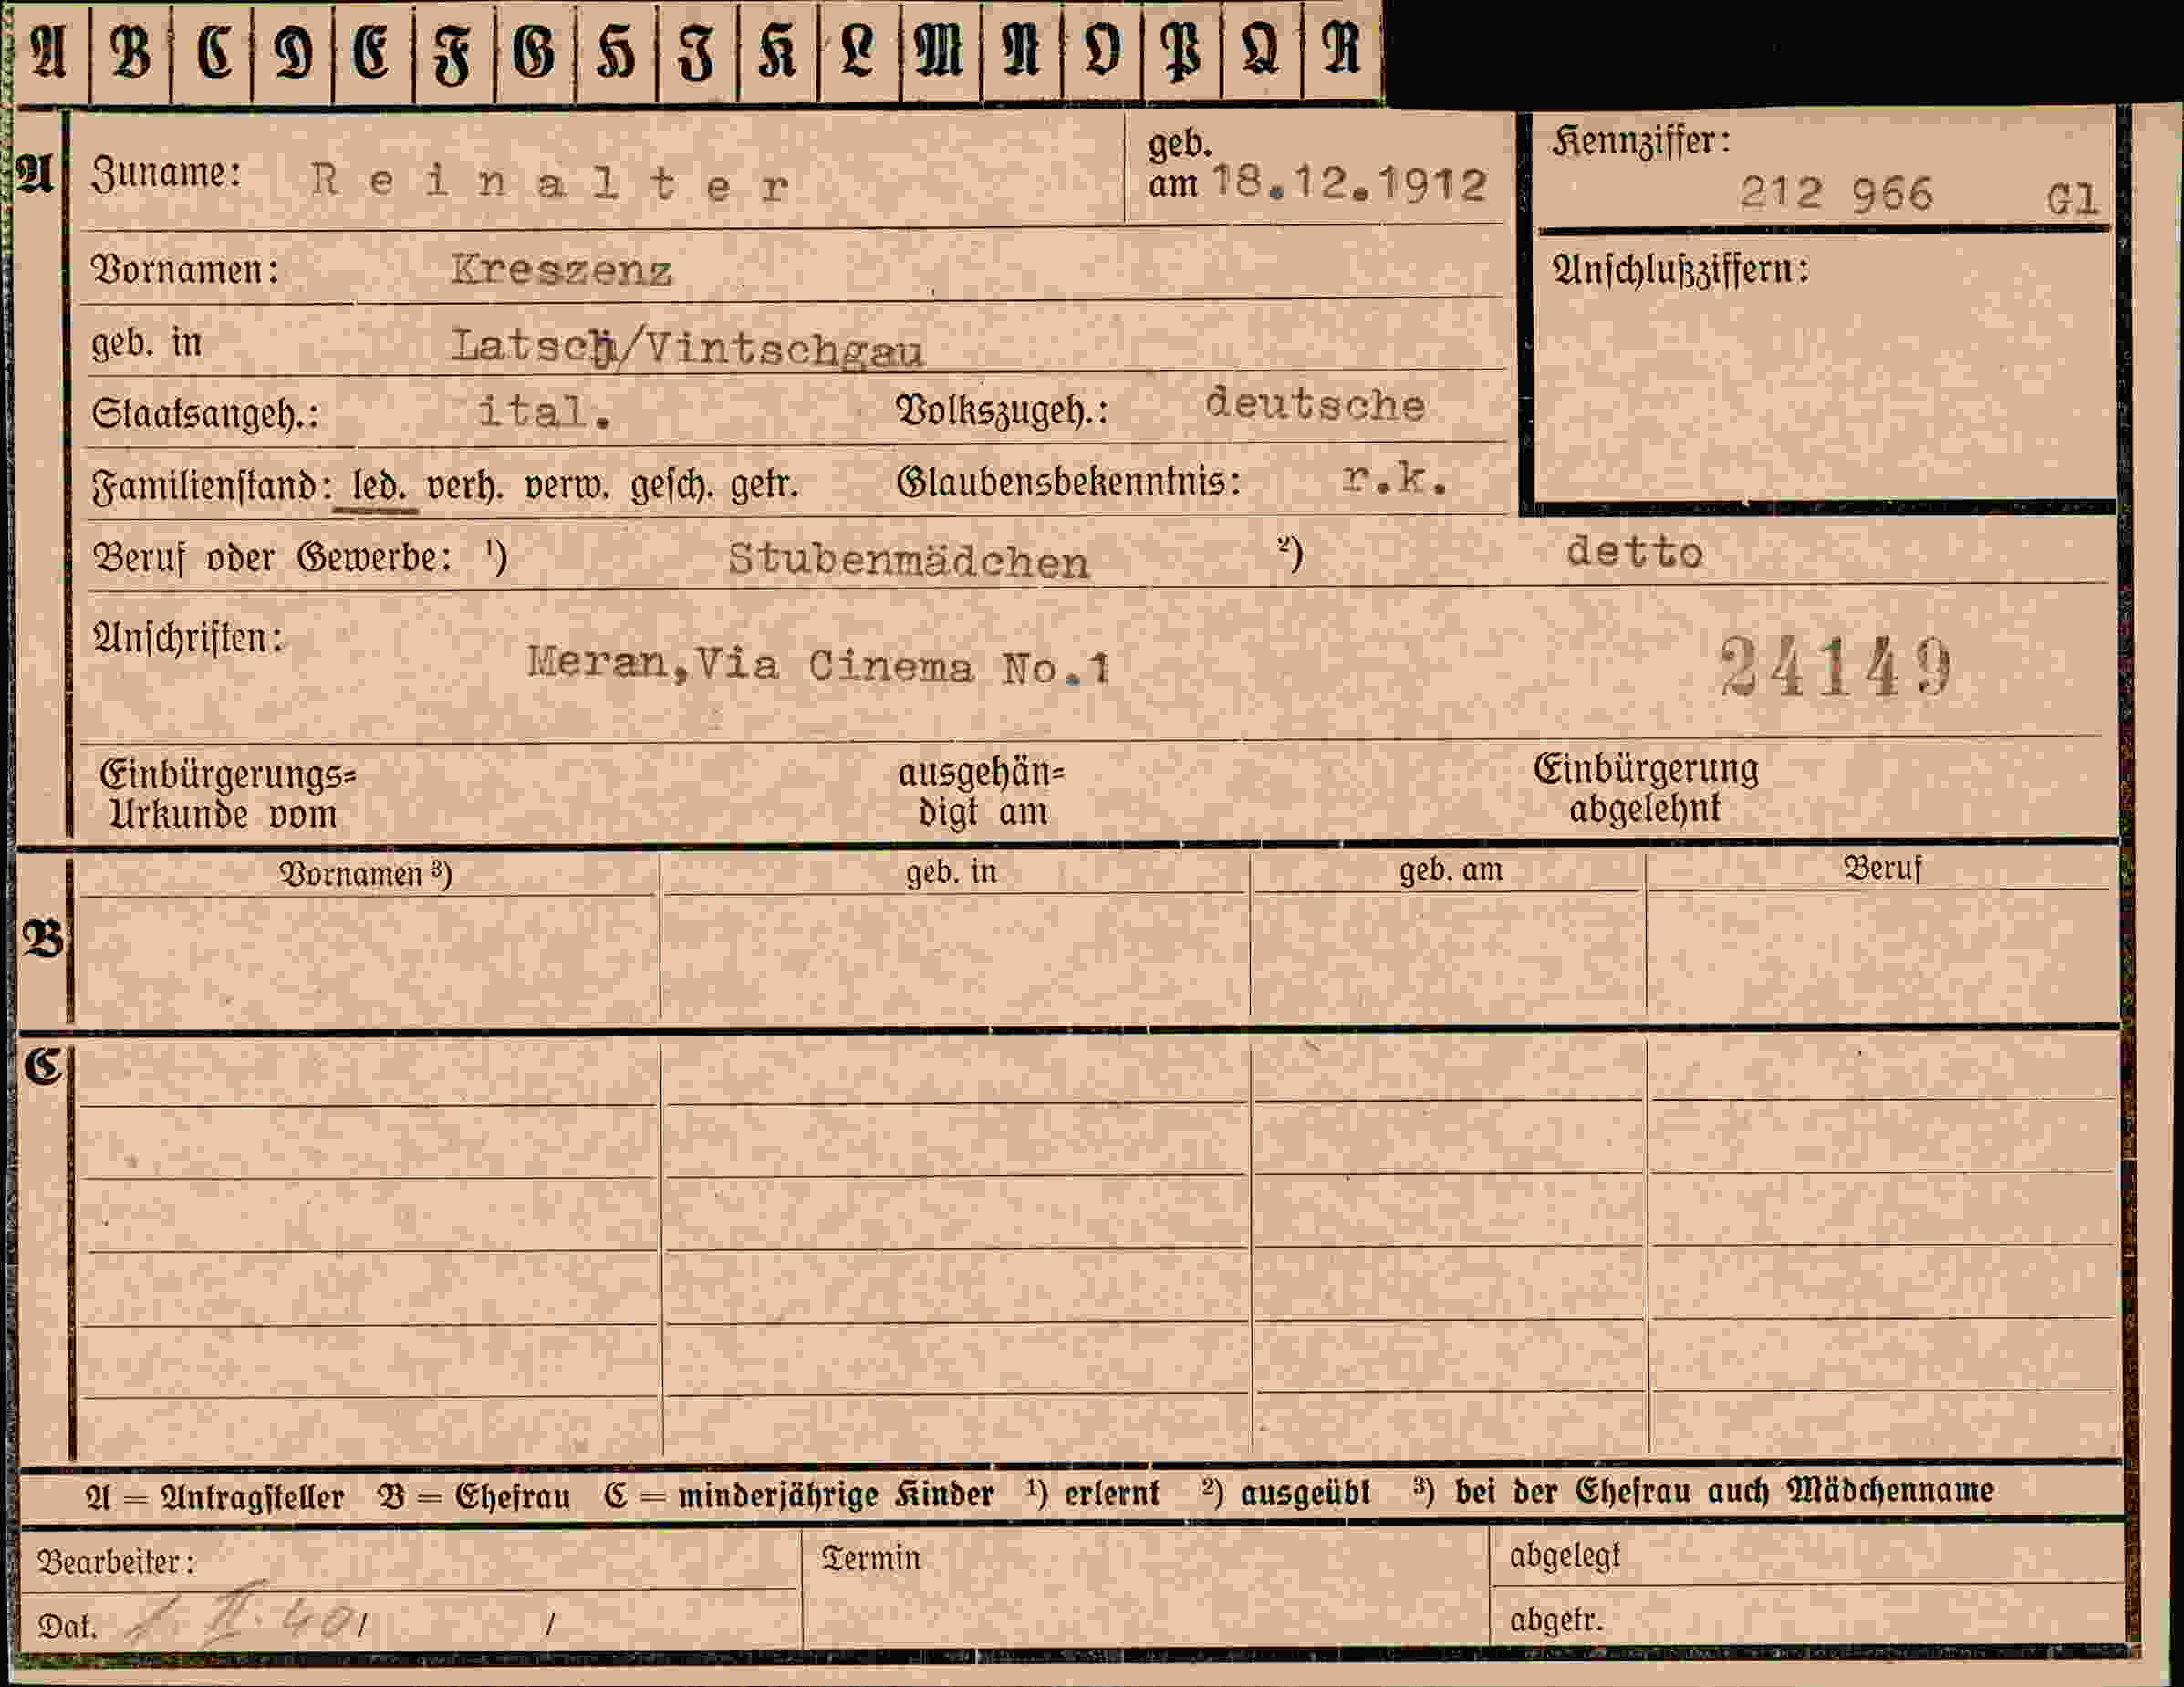 A B C D E F G H J K L M N O P Q R
A Zuname: Reinalter geb. am 18.12.1912 Kennziffer: 212 966 Gl
Vornamen: Kreszenz Anschlußziffern:
geb. in Latsch/Vintschgau
Staatsangeh.: ital. Volkszugeh.: deutsche
Familienstand: led. verh. verw. gesch. getr. Glaubensbekenntnis: r.k.
Beruf oder Gewerbe: ¹) Stubenmädchen ²) detto
Anschriften: Meran,Via Cinema No.1 24149
Einbürgerungs= ausgehän= Einbürgerung
Urkunde vom digt am abgelehnt
Vornamen ³) geb. in geb. am Beruf
B
C
A = Antragsteller B = Ehefrau C = minderjährige Kinder ¹) erlernt ²) ausgeübt ³) bei der Ehefrau auch Mädchenname
Bearbeiter: Termin abgelegt
Dat. 1. II. 40 / / abgetr.